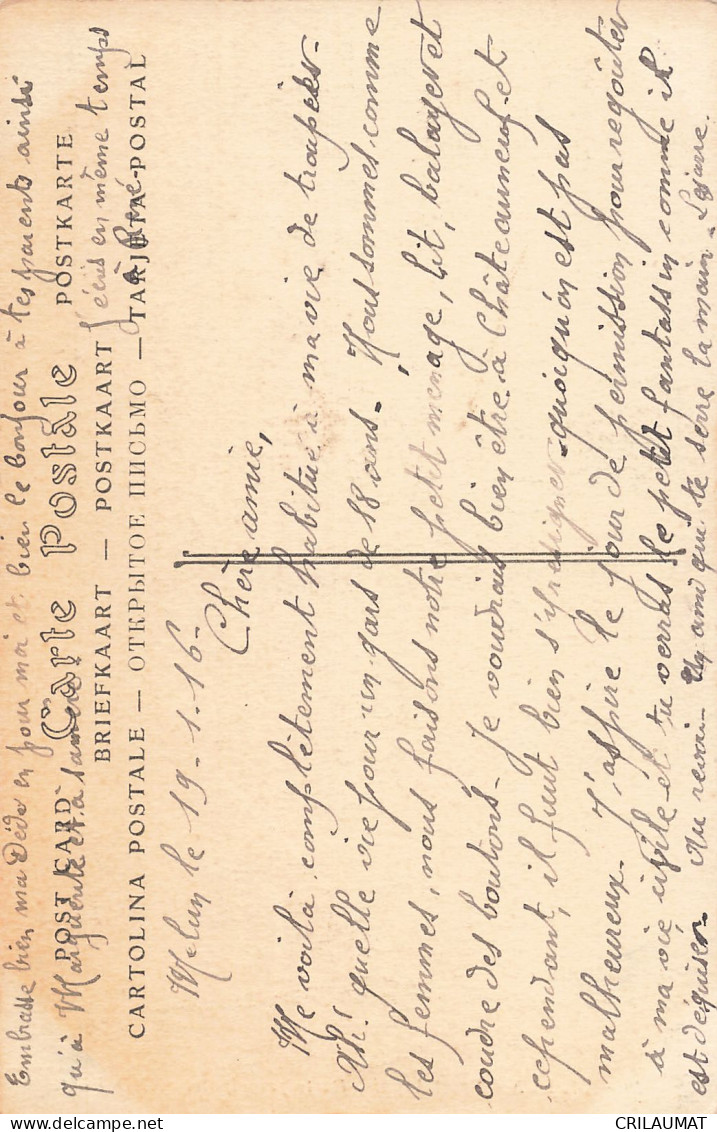 Embrasse bien ma Dédé en pour moi et bien le bonjour à tes parents ainsi
qu'à Marguerite et à
j'écris en même temps
à René
POST CARD Carte Postale POSTKARTE
BRIEFKAART — POSTKAART
CARTOLINA POSTALE — ОТКРЫТОЕ ПИСЬМО — TARJETA POSTAL
Melun le 19-1-16-
Chère amie,
Me voilà complètement habitué à ma vie de troupier-
Ah! quelle vie pour un gars de 18 ans-, Nous sommes comme
les femmes, nous faisons notre petit ménage, lit, balayer et
coudre des boutons- Je voudrais bien être à Châteauneuf et
cependant, il faut bien s'y résigner quoiqu'on est pas
malheureux. J'aspire le jour de permission pour regoûter
à ma vie civile et tu verras le petit fantassin comme il
est déguiser- Au revoir- Un ami qui te serre la main- Lejarre.
CRILAUMAT